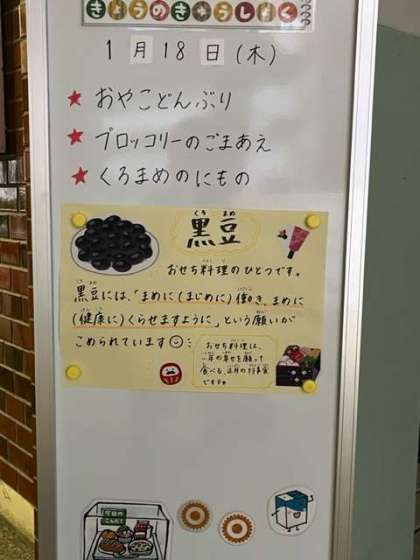 きょうのきゅうしょく
1月18日(木)
★おやこどんぶり
★ブロッコリーのごまあえ
★くろまめのにもの
くろ まめ
黒豆
おせち料理のひとつです。
黒豆には、「まめに(まじめに)働き、まめに
(健康に)くらせますように」という願いが
こめられています
おせち料理は、
一年の幸せを願って
食べる、お正月の行事食
ですよ
今日の
こんだて